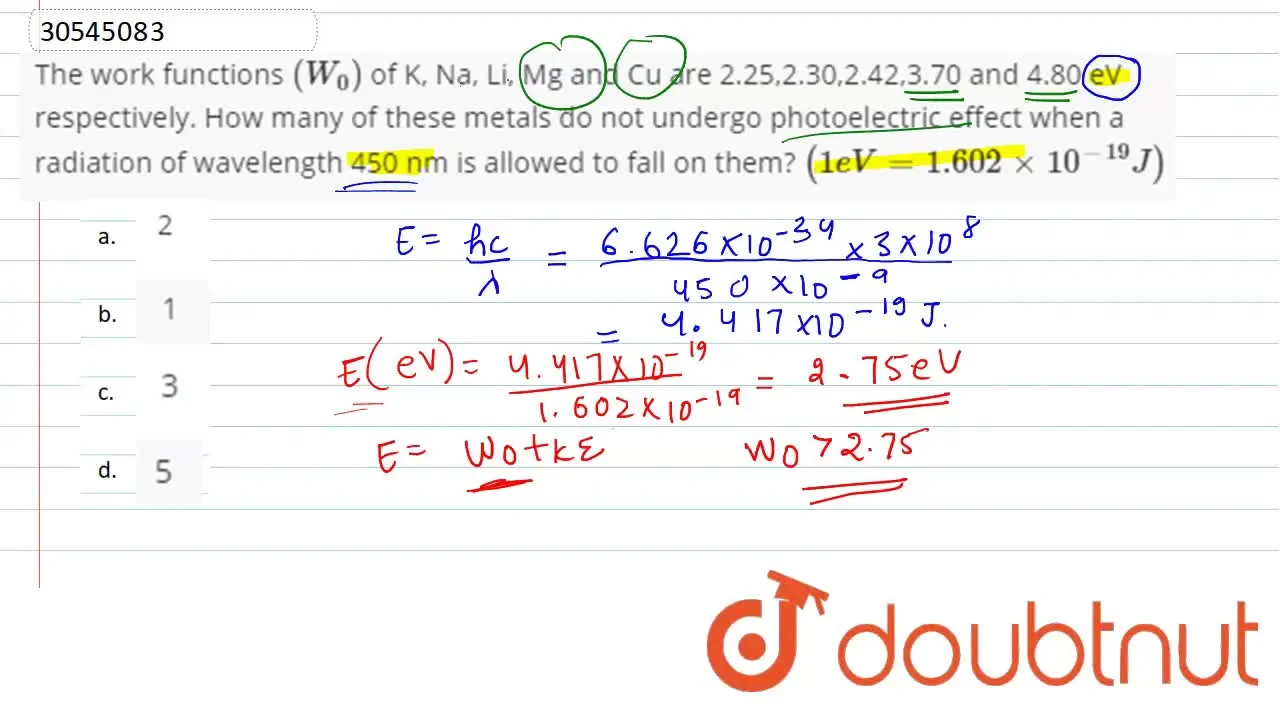 30545083
The work functions (W₀) of K, Na, Li, Mg and Cu are 2.25,2.30,2.42,3.70 and 4.80 eV
respectively. How many of these metals do not undergo photoelectric effect when a
radiation of wavelength 450 nm is allowed to fall on them? (1eV = 1.602 × 10⁻¹⁹J)
a. 2
b. 1
c. 3
d. 5
E = hc/λ = 6.626×10⁻³⁴ × 3×10⁸ / 450 ×10⁻⁹
= 4.417×10⁻¹⁹ J.
E(eV) = 4.417×10⁻¹⁹ / 1.602×10⁻¹⁹ = 2.75eV
E = W0+KE W0 > 2.75
doubtnut